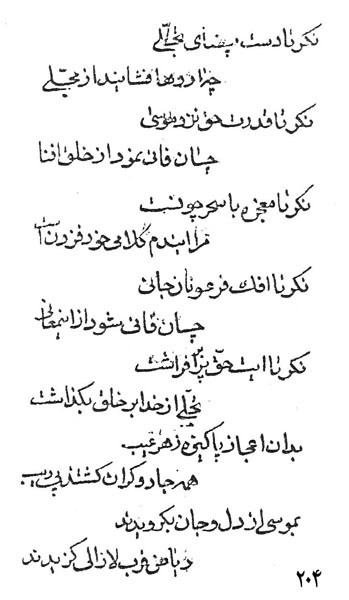 نکر تا دست بیضای تجلّی
چراروها فشاینداز مجلّی
نکر تا قدرت حق نزد موسی
چسان فانی نمود از خلق افنا
نکر تا معجزه با سحر چونست
مرا ایندم کلامی خود فزون است
نکر تا افک فرعونان جانی
چسان فانی شود از اینمعانی
نکر تا ایت حقّ بر افراشت
تجلّی از خدا بر خلق بکذاشت
بدان اعجاز پاکیزه زهر عیب
همه جادوکران کشتند بی ریب
بموسی از دل و جان بکرویدند
قرب لازالی کزیدند
۲۰۴